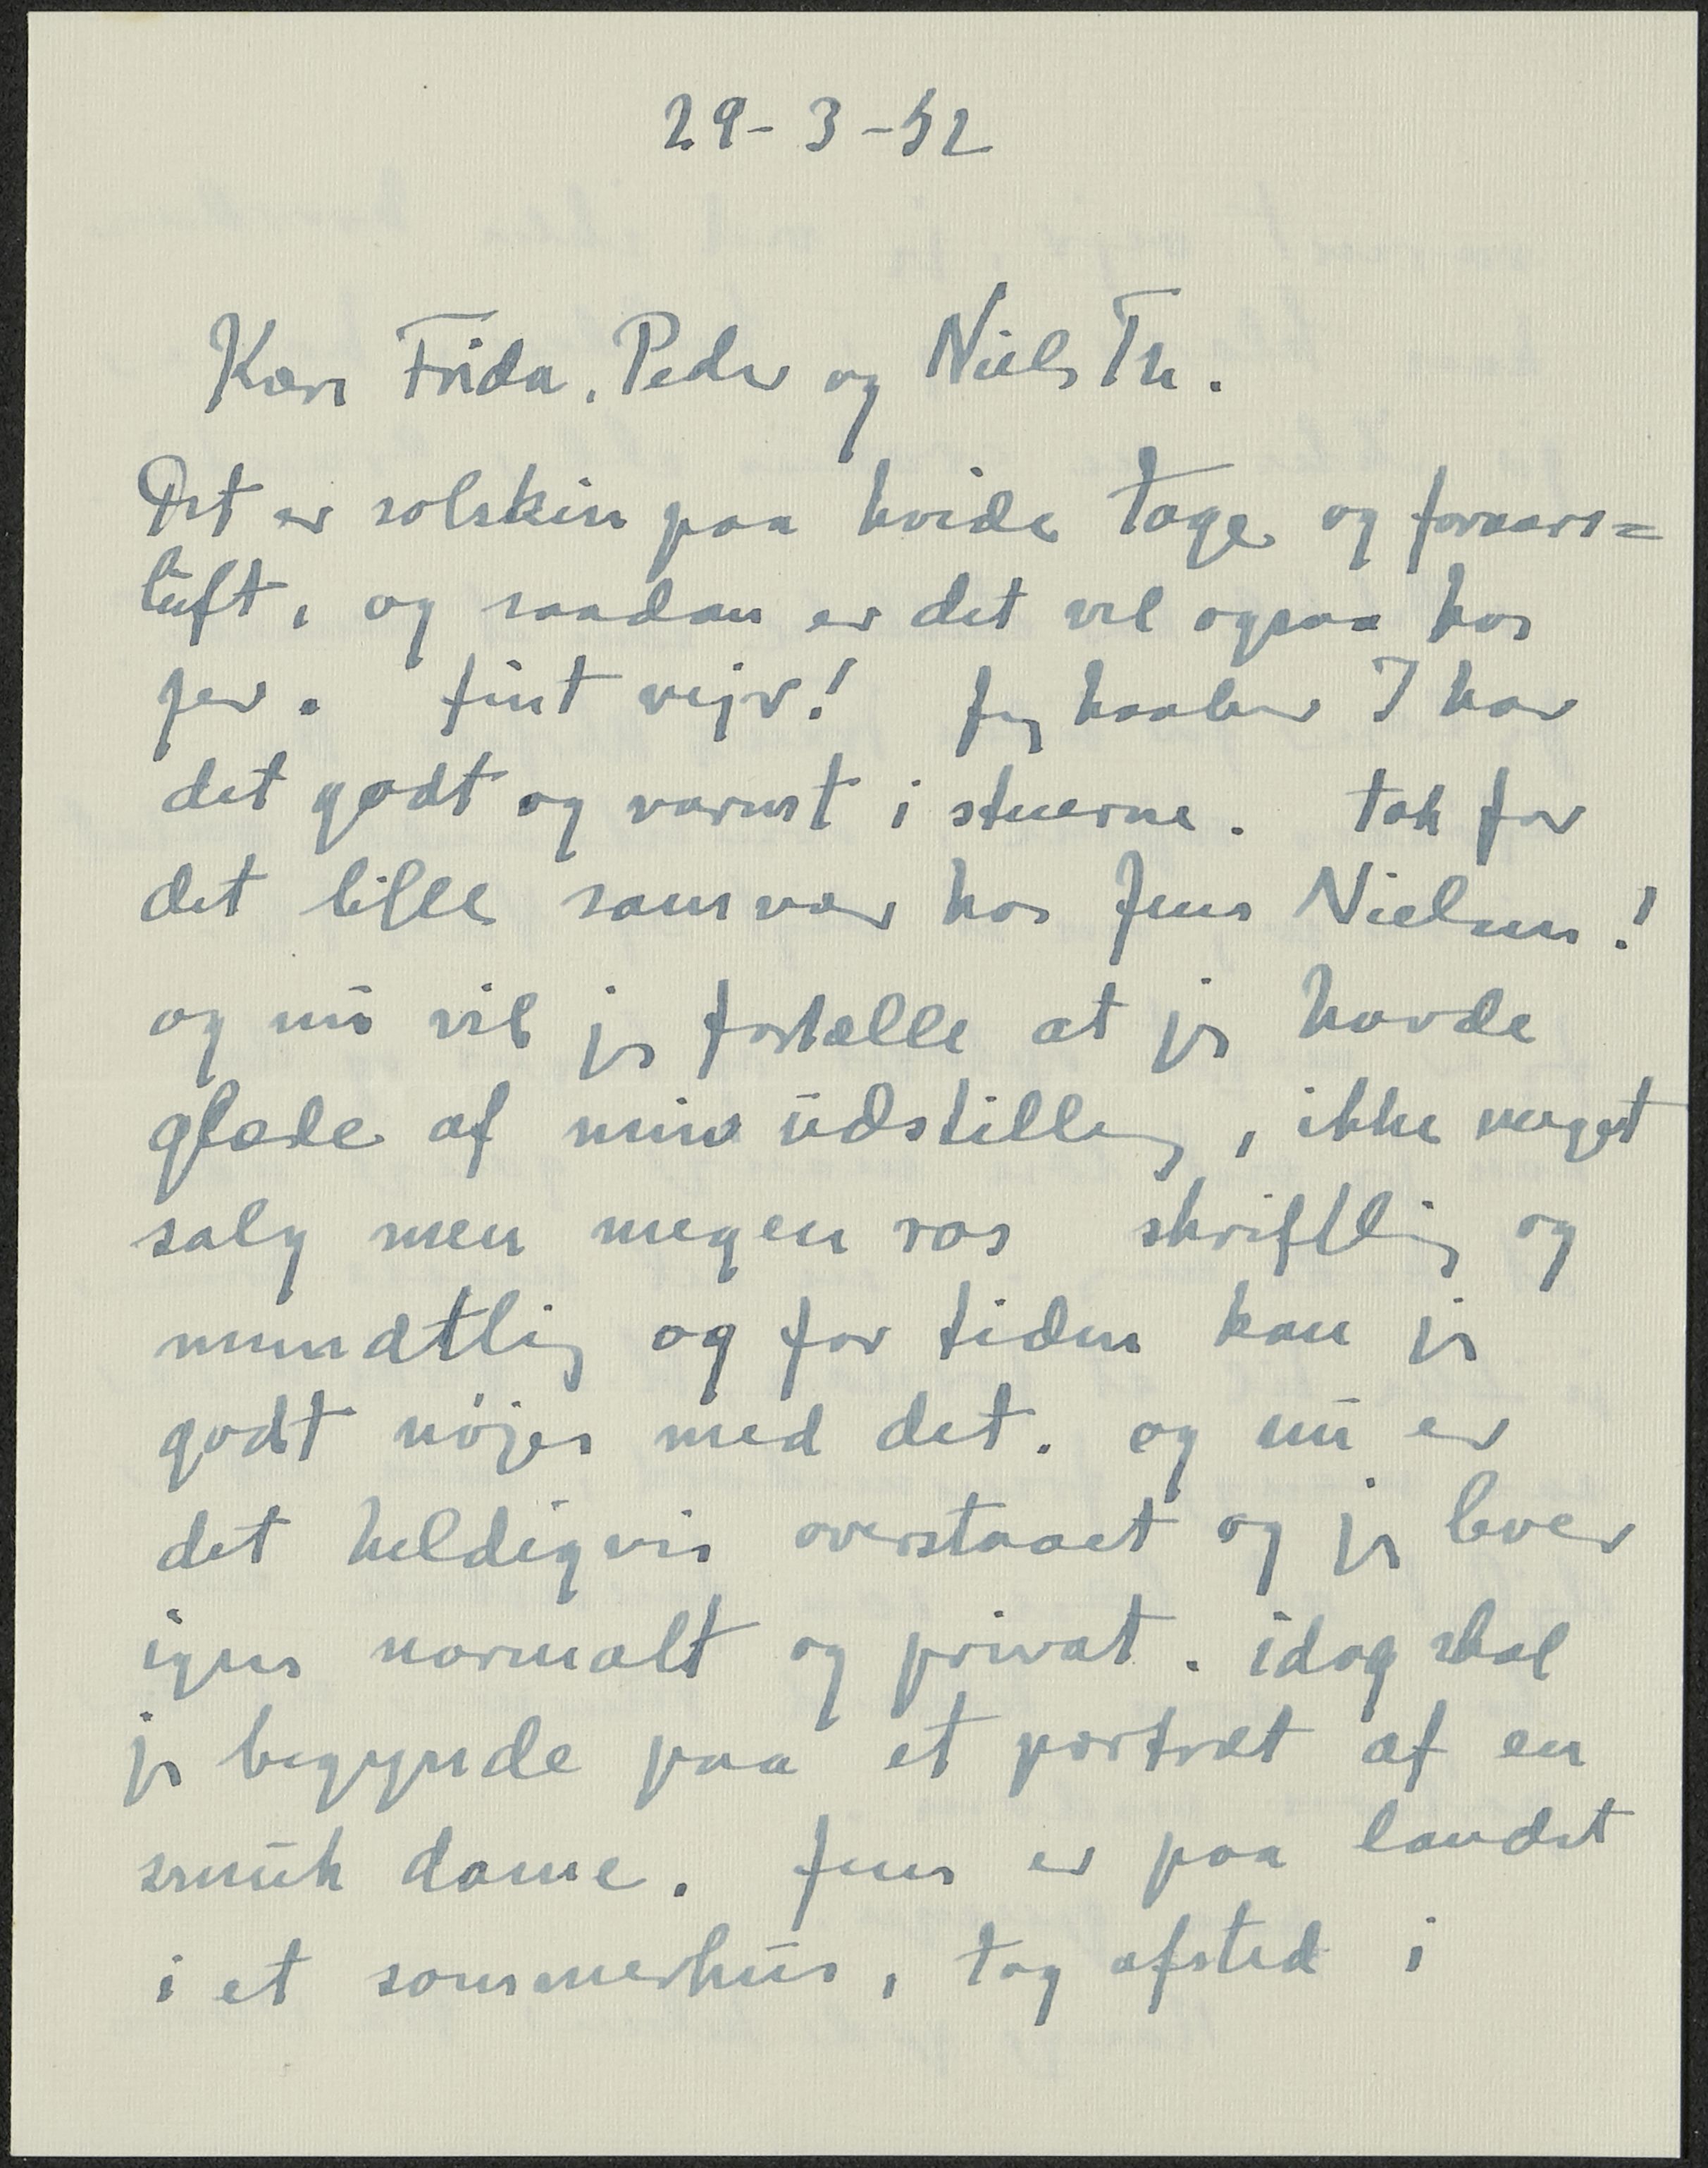 29-3-52
Kære Frida, Peder og Niels Th.
Det er solskin paa hvide tage og foraars=
luft, og saadan er det vel ogsaa hos
jer. fint vejr! Jeg haaber I har
det godt og varmt i stuerne. tak for
det lille samvær hos Jens Nielsen!
og nu vil jeg fortælle at jeg havde
glæde af min udstilling, ikke meget
salg men megen ros skriftlig og
mundtlig og for tiden kan jeg
godt nøjes med det. og nu er
det heldigvis overstaaet og jeg lever
igen normalt og privat. idag skal
jeg begynde paa et portræt af en
smuk dame. Jens er paa landet
i et sommerhus, tog afsted i